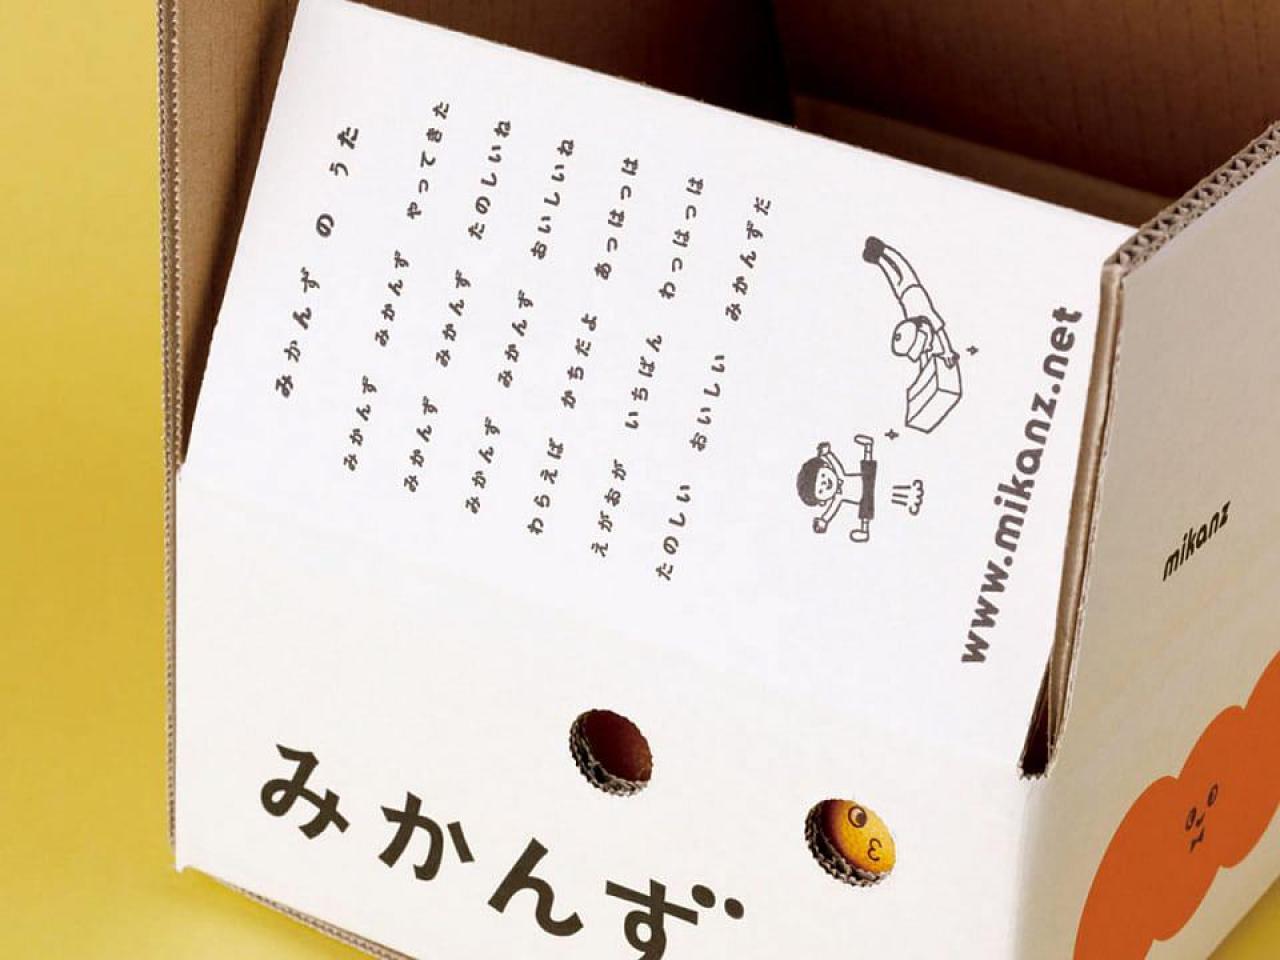 みかんずのうた
みかんず みかんず やってきた
みかんず みかんず たのしいね
みかんず みかんず おいしいね
わらえば かちだよ あっはっは
えがおが いちばん わっはっは
たのしい おいしい みかんずだ
www.mikanz.net
みかんず
mikanz